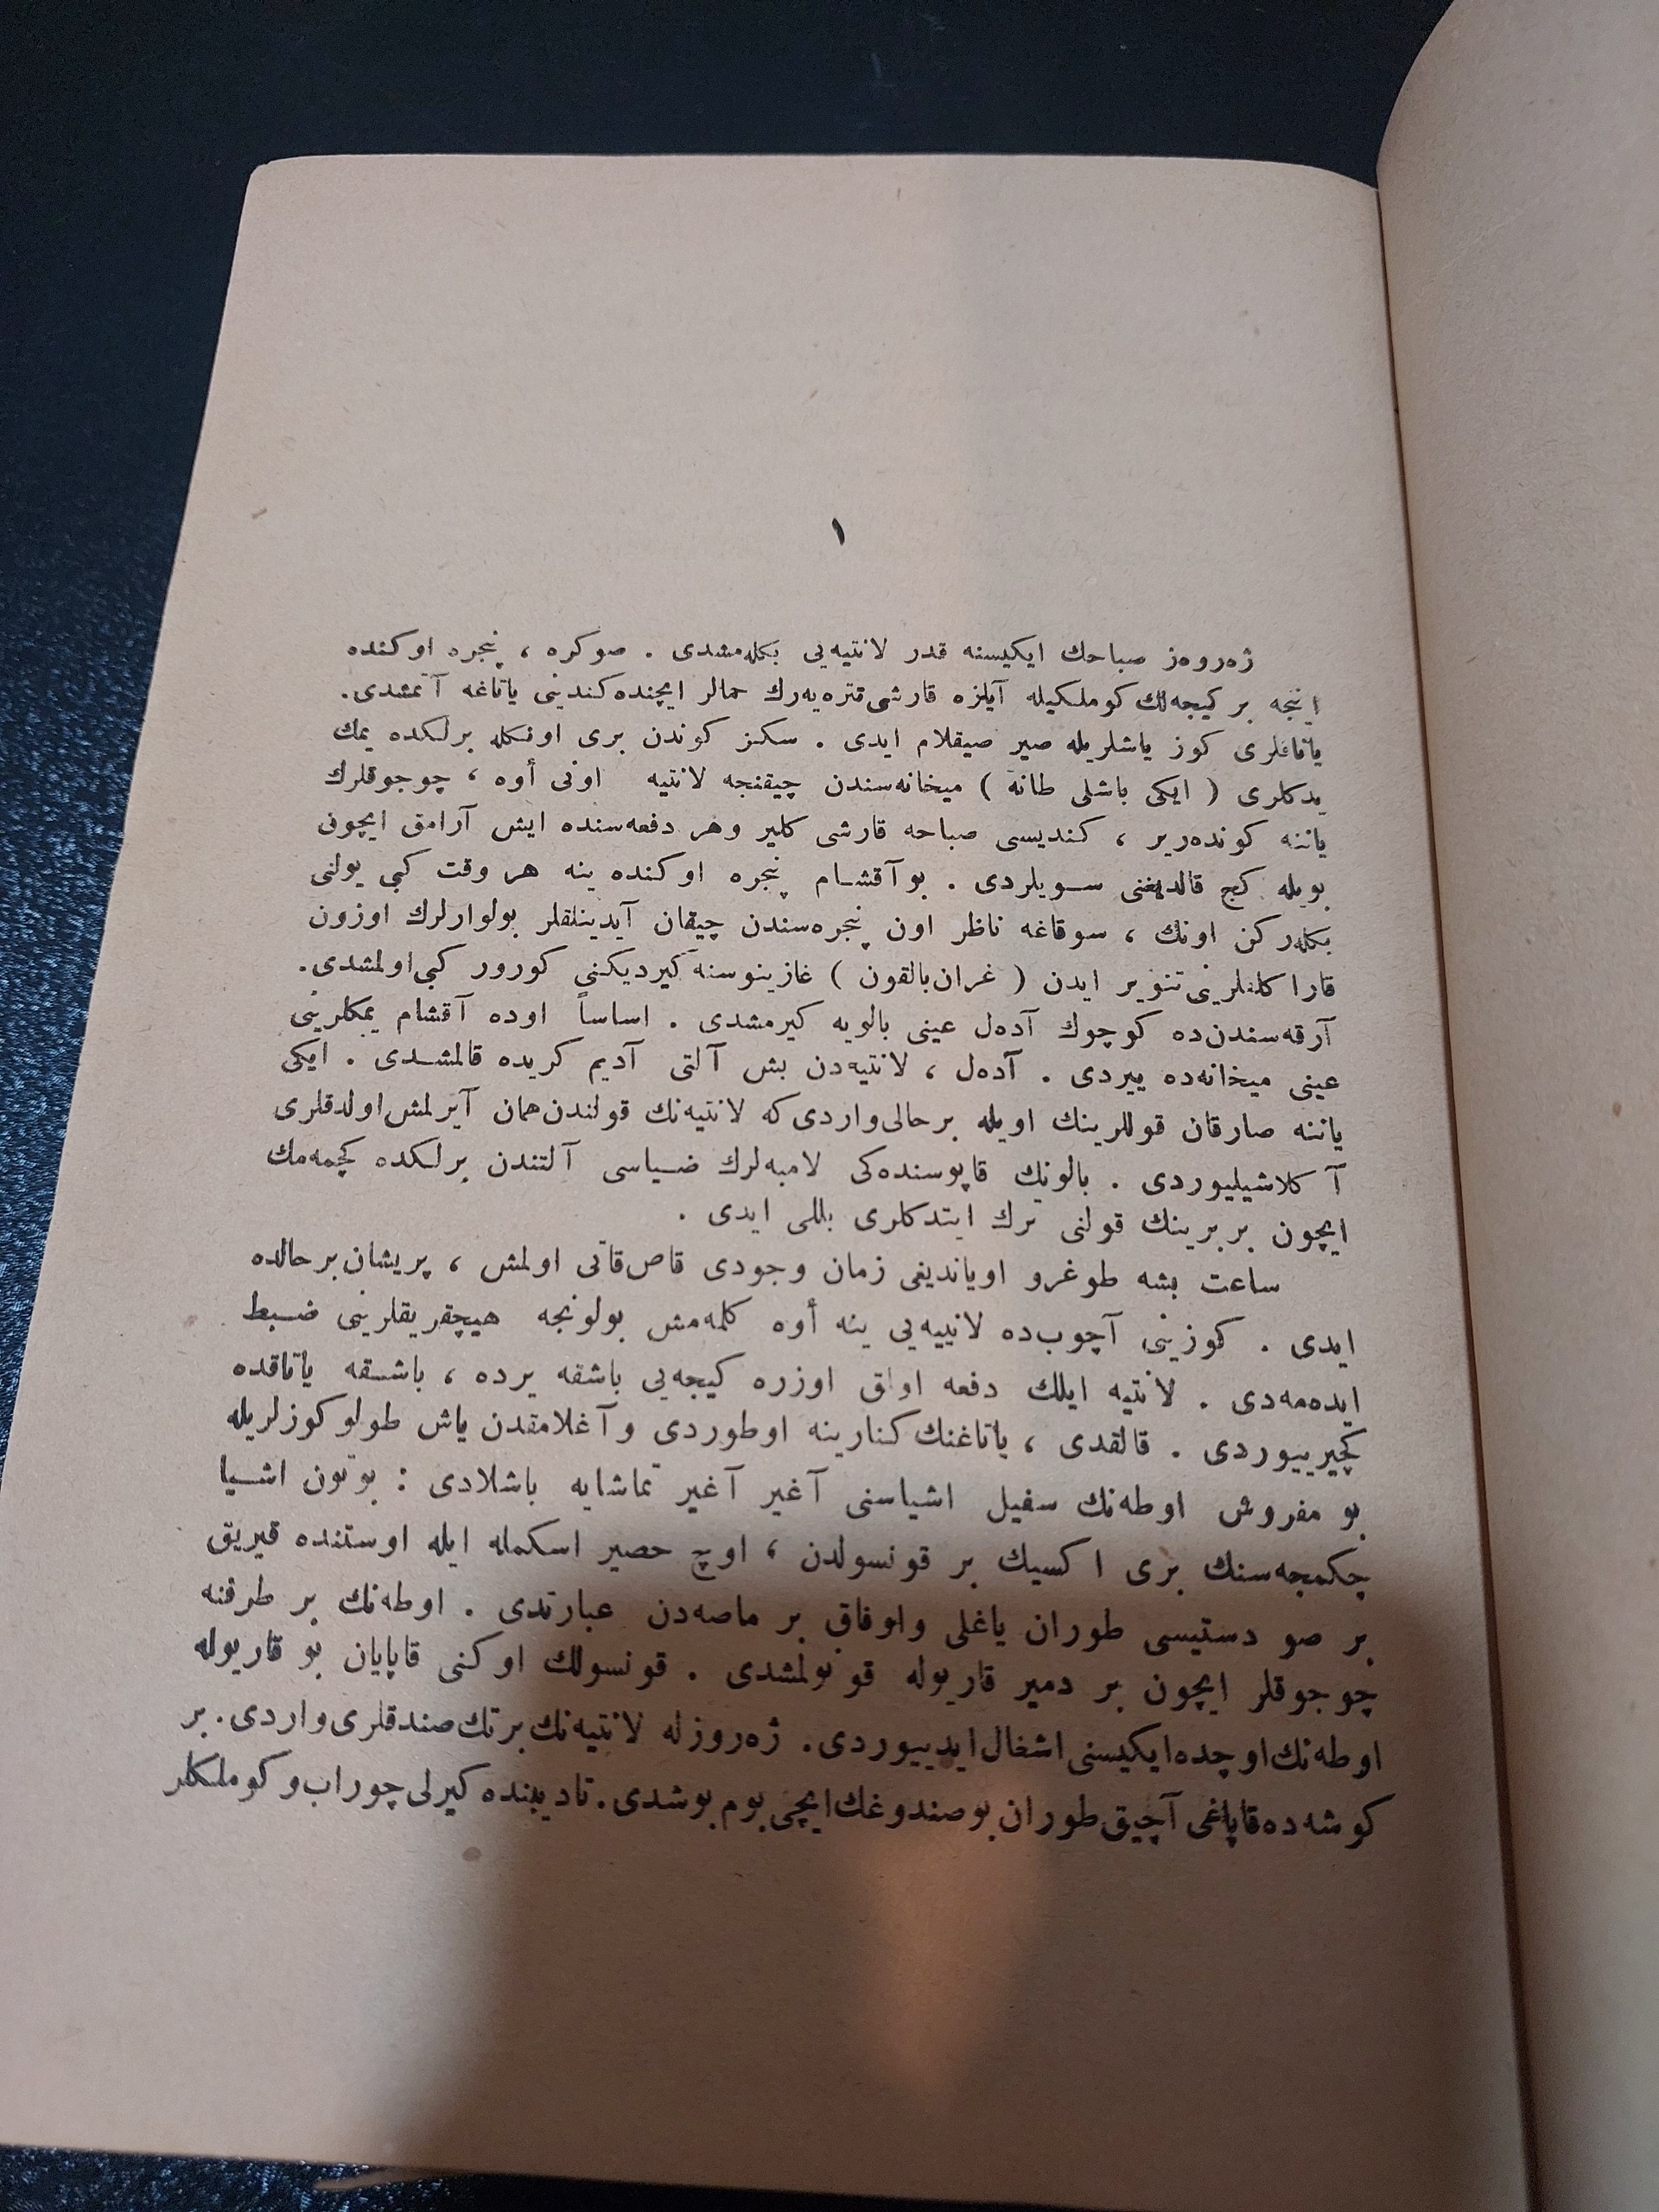 ١
ژه‌روه‌ز صباحك ايكيسنه قدر لانتيه‌يی بكله‌مشدی . صوكره ، پنجره اوكنده
اينجه بر كيجه‌لك كوملكيله آيازه قارشی تتره‌يه‌رك حمالر ايچنده كندينی ياتاغه آتمشدی.
ياناقلری كوز ياشلريله صير صيقلام ايدی . سكز كوندن بری اونكله برلكده يمك
يدكلری ( ايكی باشلی طانه ) ميخانه‌سندن چيقنجه لانتيه اونی أوه ، چوجوقلرك
ياننه كونده‌رير ، كنديسی صباحه قارشی كلير وهر دفعه‌سنده ايش آرامق ايچون
بويله كج قالديغنی سويلردی . بوآقشام پنجره اوكنده ينه هر وقت كبی يولنی
بكله‌ركن اونك ، سوقاغه ناظر اون پنجره‌سندن چيقان آيدينلقلر بولوارلرك اوزون
قاراكلقلرينی تنوير ايدن ( غران‌بالقون ) غازينوسنه كيرديكنی كورور كبی‌اولمشدی.
آرقه‌سندن‌ده كوچوك آده‌ل عينی بالويه كيرمشدی . اساساً اوده آقشام يمكلرينی
عينی ميخانه‌ده ييردی . آده‌ل ، لانتيه‌دن بش آلتی آديم كريده قالمشدی . ايكی
ياننه صارقان قوللرينك اويله برحالی‌واردی‌كه لانتيه‌نك قولندن‌همان آيرلمش‌اولدقلری
آكلاشيليوردی . بالونك قاپوسنده‌كی لامبه‌لرك ضياسی آلتندن برلكده كچمه‌مك
ايچون بربرينك قولنی ترك ايتدكلری بللی ايدی .
ساعت بشه طوغرو اوياندیغی زمان وجودی قاص‌قاتی اولمش ، پريشان‌برحالده
ايدی . كوزينی آچوب‌ده لانتيه‌يی ينه أوه كلمه‌مش بولونجه هيچقريقلرينی ضبط
ايده‌مه‌دی . لانتيه ايلك دفعه اولق اوزره كيجه‌يی باشقه يرده ، باشقه ياتاقده
كچيرييوردی . قالقدی ، ياتاغنك كنارينه اوطوردی و آغلامقدن ياش طولو كوزلريله
بو مفروش اوطه‌نك سفيل اشياسنی آغير آغير تماشايه باشلادی : بوتون اشيا
چكمجه‌سنك بری اكسيك بر قونسولدن ، اوچ حصير اسكمله ايله اوستنده قيريق
بر صو دستيسی طوران ياغلی واوفاق بر ماصه‌دن عبارتدی . اوطه‌نك بر طرفنه
چوجوقلر ايچون بر دمير قاريوله قونولمشدی . قونسولك اوكنی قاپايان بو قاريوله
اوطه‌نك اوچده ايكيسنی اشغال ايدييوردی. ژه‌روزله لانتيه‌نك برتك صندقلری واردی. بر
كوشه‌ده قاپاغی آچيق طوران بو صندوغك ايچی بوم بوشدی. تا ديبنده كيرلی چوراب و كوملكلر